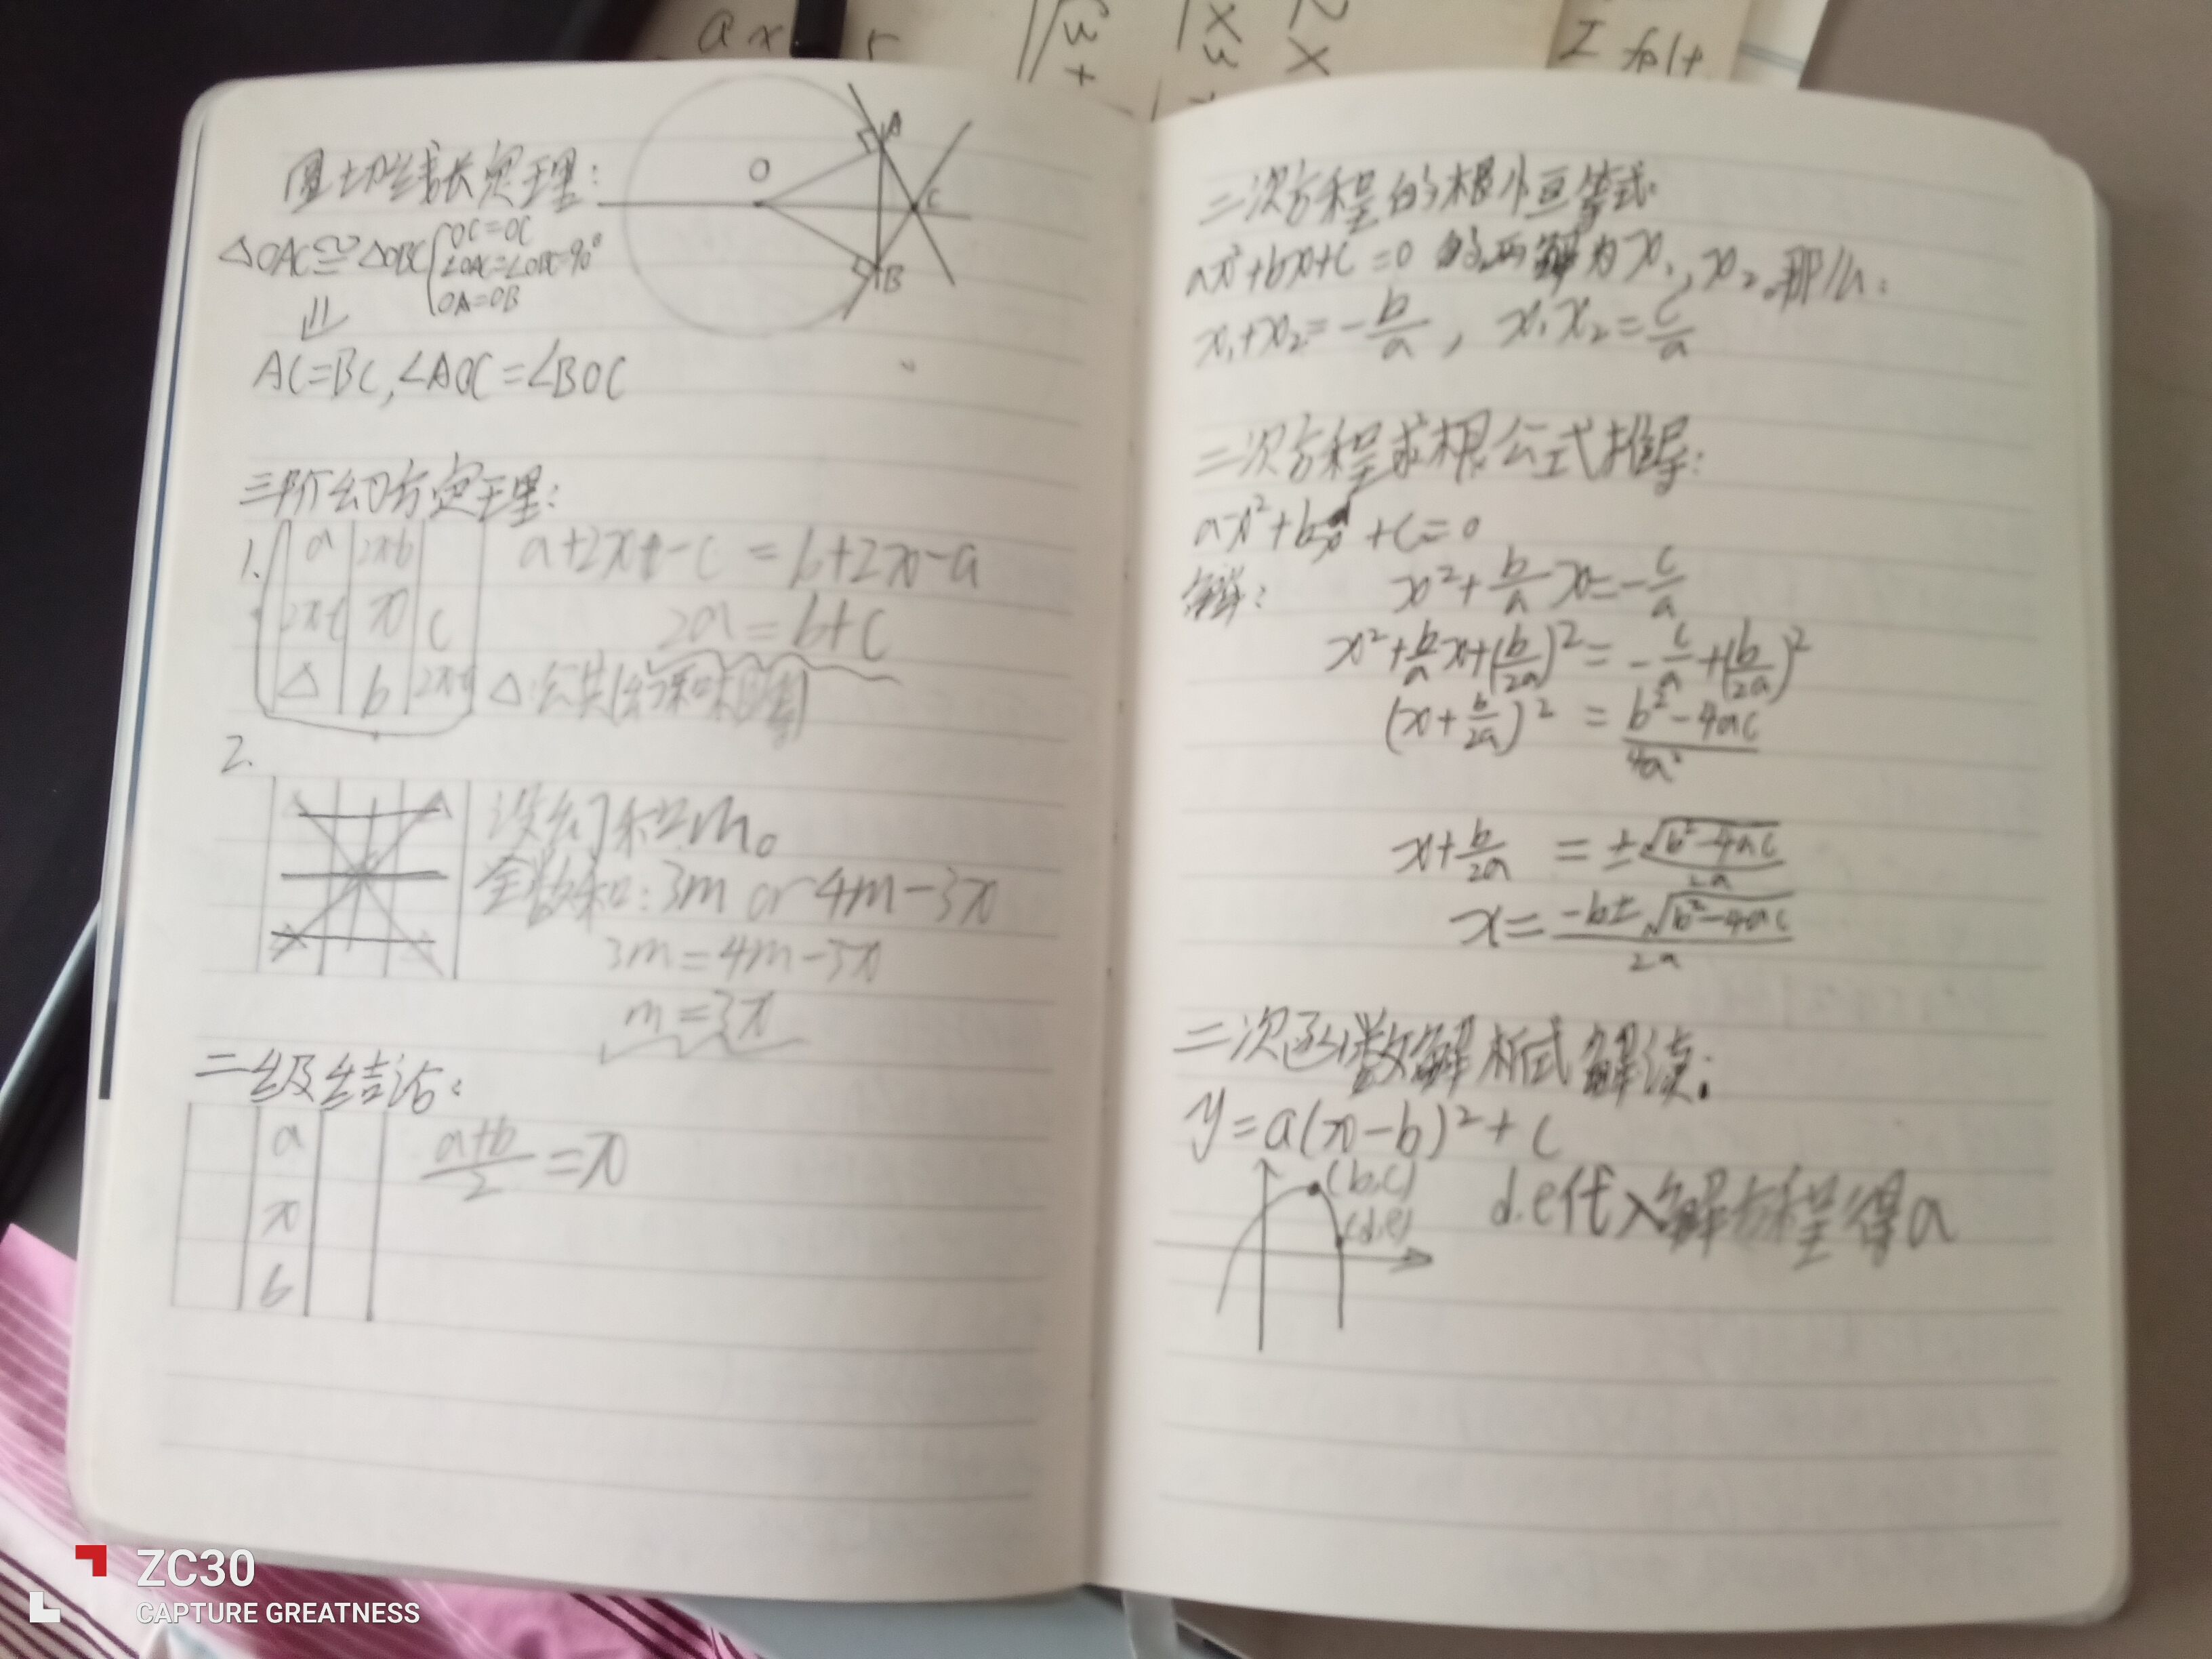 圆切线长定理:
O
A
C
B
△OAC≅△OBC
OC=OC
∠OAC=∠OBC=90°
OA=OB
⇓
AC=BC,∠AOC=∠BOC
三阶幻方定理:
1.
a 2x-b
2x-c x c
△ b 2x-a
a+2x-c = b+2x-a
2a=b+c
△:公共
2.
设幻和是m。
全数和:3m or 4m-3x
3m=4m-3x
m=3x
二级结论:
a
x
b
a+b/2=x
二次方程的根小恒等式:
ax²+bx+c=0 的两解为x₁,x₂。那么:
x₁+x₂=-b/a, x₁x₂=c/a
二次方程求根公式推导:
ax²+bx+c=0
解: x²+b/a x=-c/a
x²+b/a x+(b/2a)²=-c/a+(b/2a)²
(x+b/2a)²=b²-4ac/4a²
x+b/2a=±√b²-4ac/2a
x=-b±√b²-4ac/2a
二次函数解析式解读:
y=a(x-b)²+c
(b,c)
(d,e)
d.e代入解方程得a
ax
I felt
ZC30
CAPTURE GREATNESS